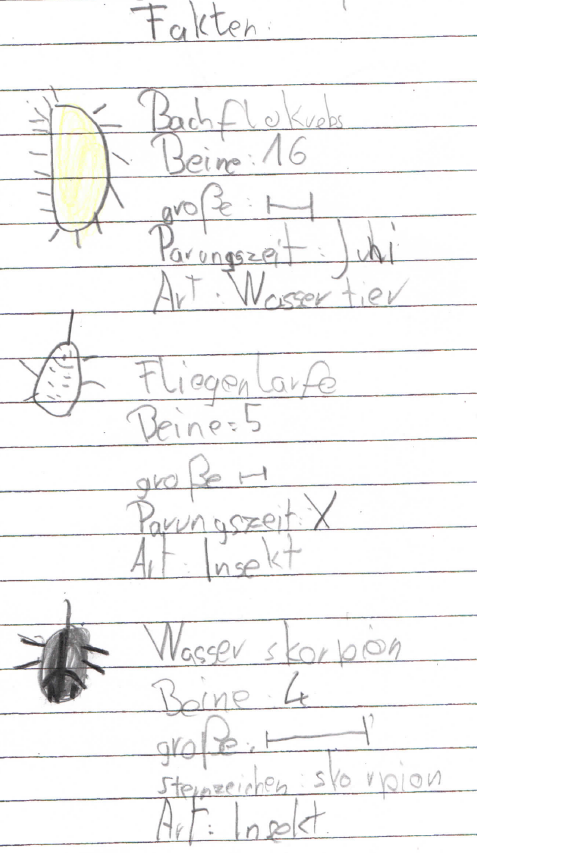 Fakten:
Bachflokrebs
Beine: 16
große:
Parungszeit: Juni
Art: Wassertier
Fliegenlarfe
Beine: 5
große
Parungszeit: X
Art: Insekt
Wasserskorpion
Beine: 4
große:
Sternzeichen: skorpion
Art: Insekt